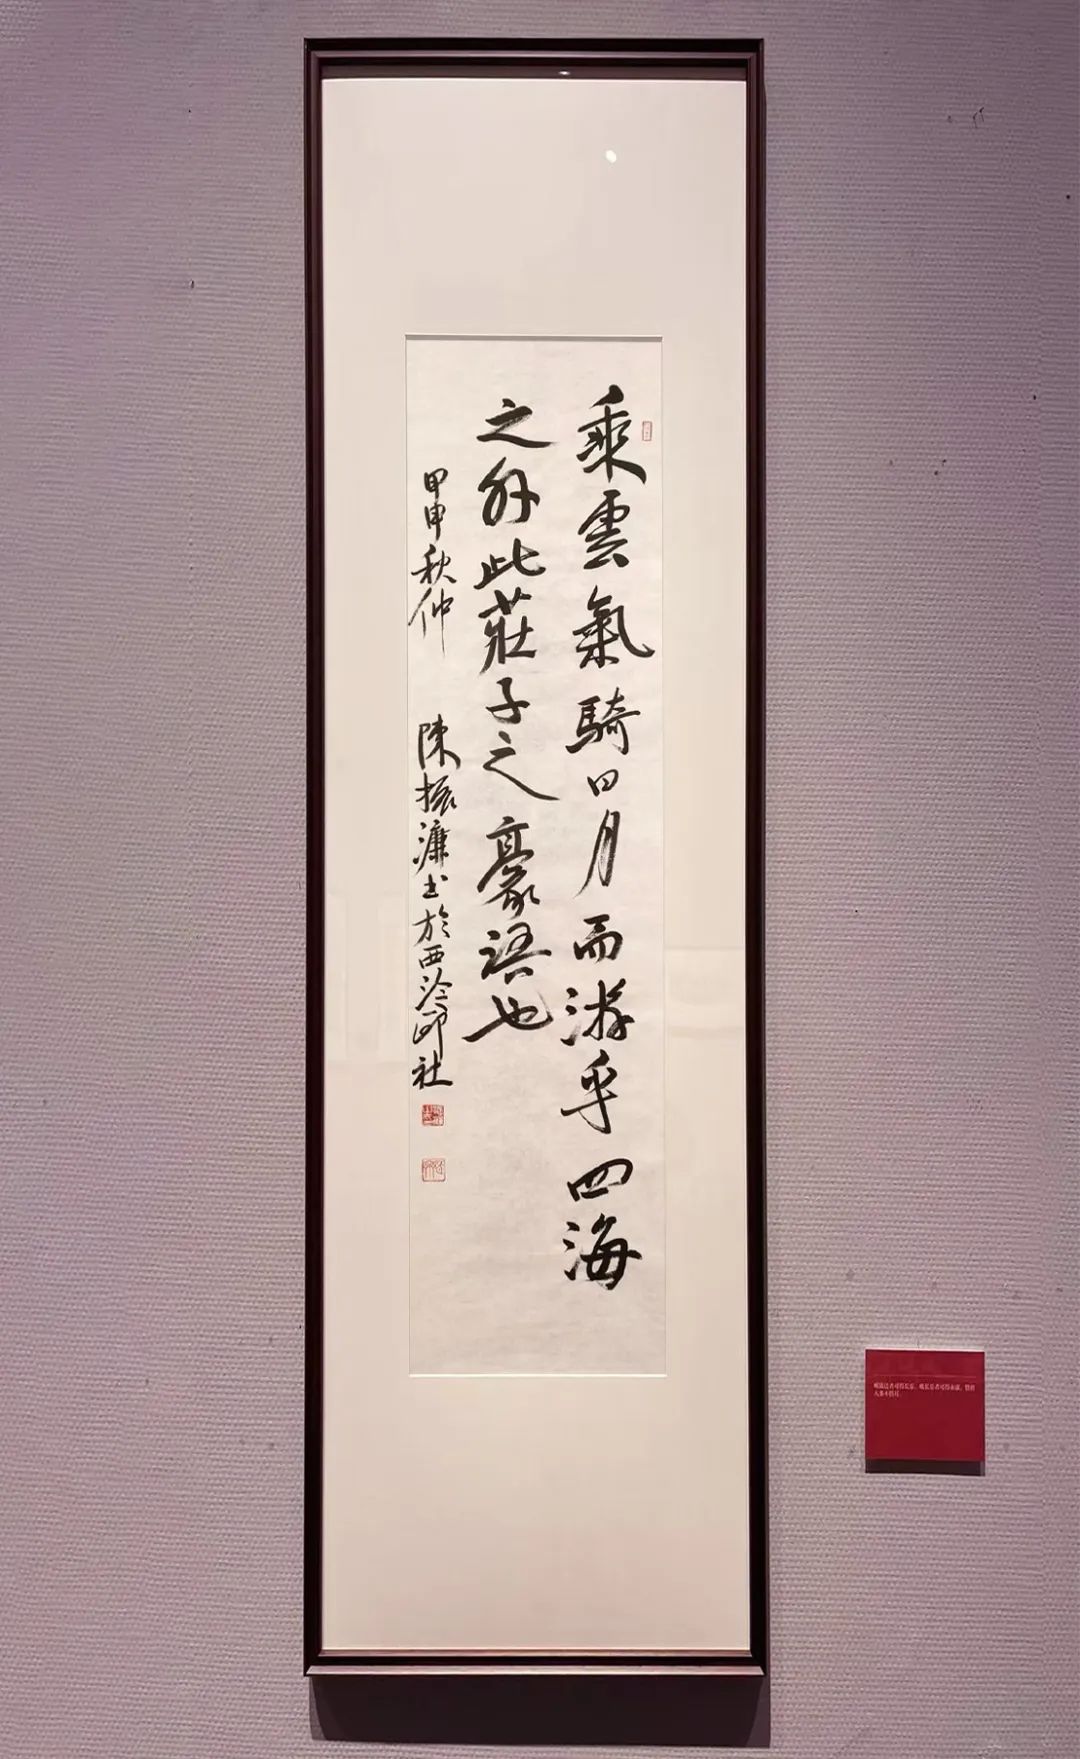 乘雲氣騎日月而游乎四海
之外此莊子之豪語也
甲申秋仲 陳振濂書於西泠印社